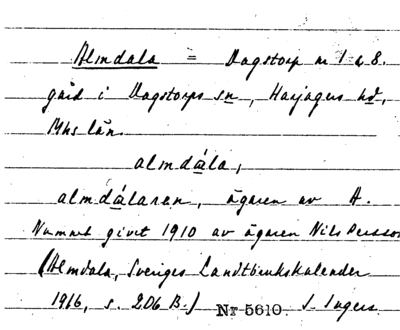 Almdala = Dagstorp nr 1 & 8.
gård i Dagstorps sn, Harjagers hd,
Mhs län.
almdála,
almdálaren, ägaren av A.
Namnet givet 1910 av ägaren Nils Persson
(Almdala, Sveriges Landtbrukskalender
1916, s. 206 B.) Nr 5610. I. Ingers.